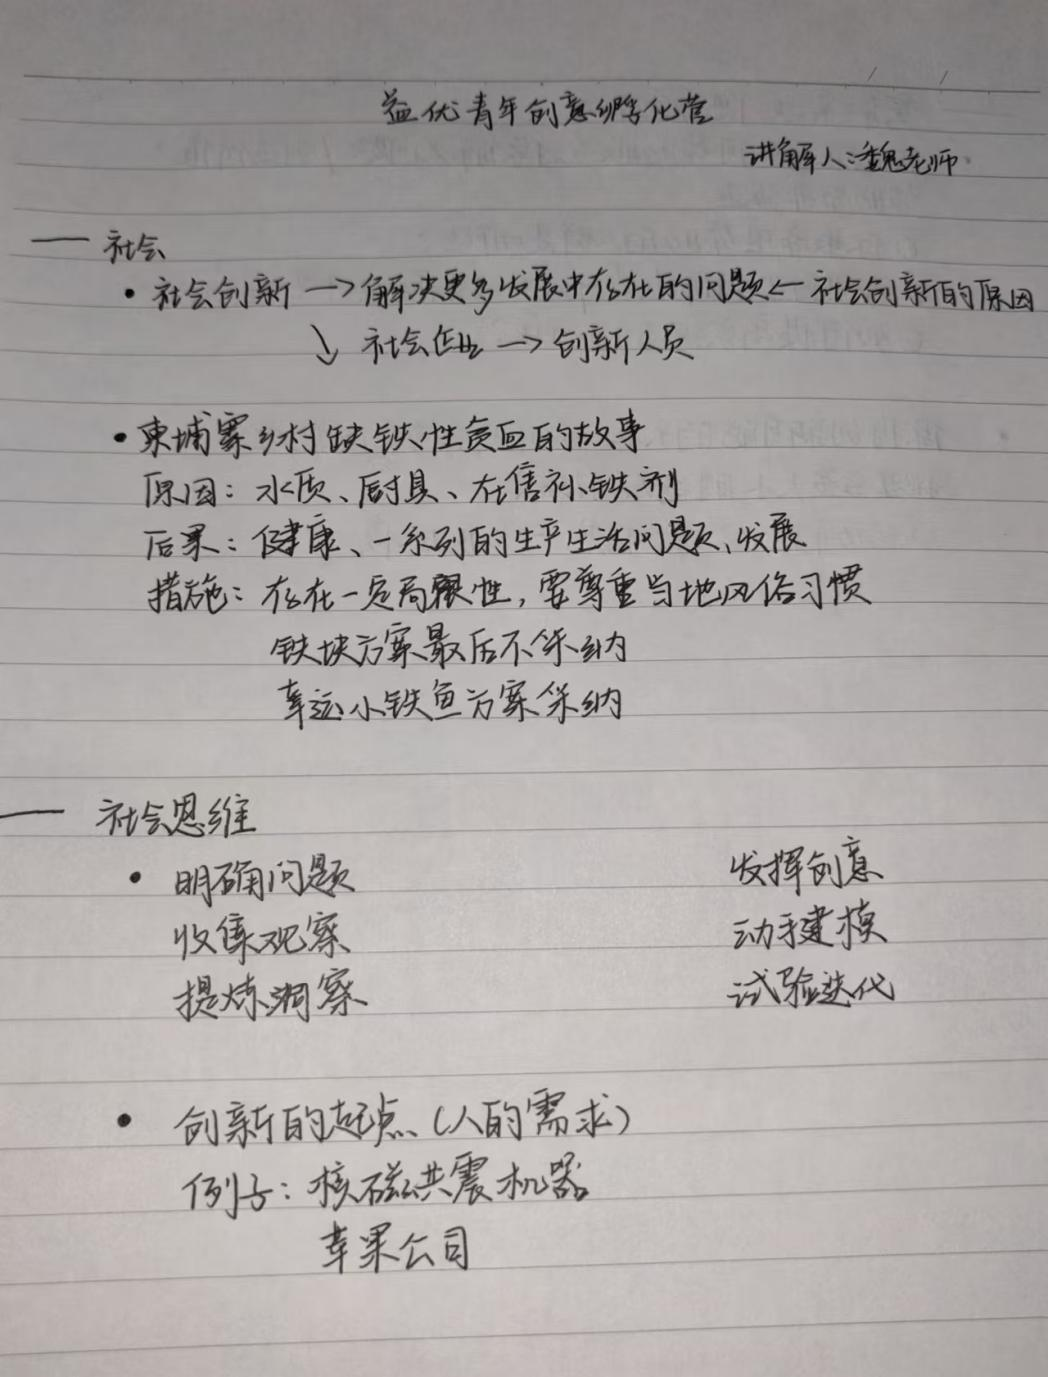 益优青年创意孵化营
讲解人:魏老师
— 社会
• 社会创新 → 解决更多发展中存在的问题 ← 社会创新的原因
↘ 社会企业 → 创新人员
• 柬埔寨乡村缺铁性贫血的故事
原因: 水质、厨具、在售补铁剂
后果: 健康、一系列的生产生活问题、发展
措施: 存在一定局限性, 要尊重当地风俗习惯
铁块方案最后不采纳
幸运小铁鱼方案采纳
— 社会思维
• 明确问题 发挥创意
收集观察 动手建模
提炼洞察 试验迭代
• 创新的起点 (人的需求)
例子: 核磁共震机器
苹果公司